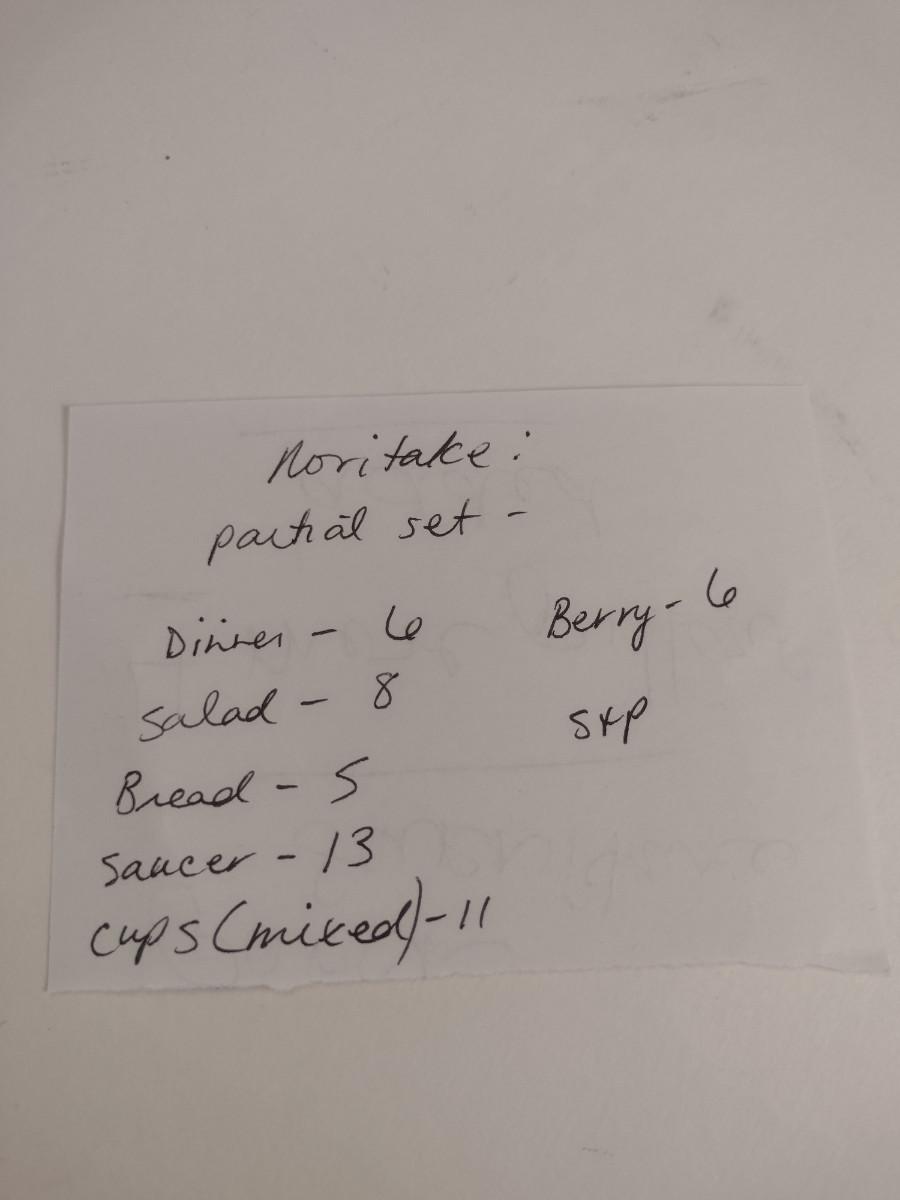 Noritake:
partial set -
Dinner - 6
Salad - 8
Bread - 5
Saucer - 13
cups (mixed) - 11
Berry - 6
S+P